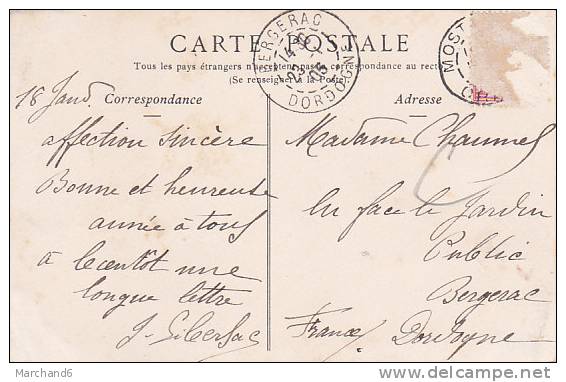 CARTE POSTALE
Tous les pays étrangers n'acceptent pas la correspondance au recto
(Se renseigner à la Poste).
BERGERAC
14 30
23
05
DORDOGNE
MOST
18 Janv.
Correspondance
Adresse
affection sincère
Bonne et heureuse
année à tous
à bientôt une
longue lettre
J.
Madame Chaumel
En face le Jardin
Public
Bergerac
France Dordogne
Marchand6
delcampe.net